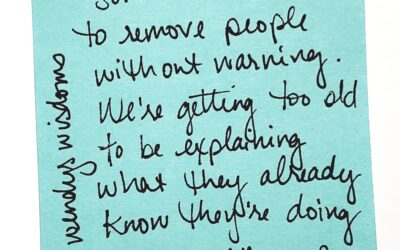 to remove people
without warning.
We're getting too old
to be explaining
what they already
know they're doing
wendys wisdoms